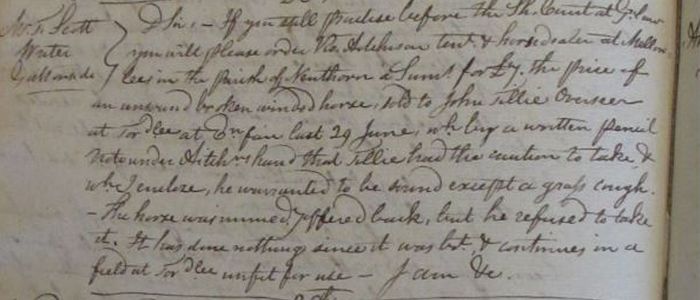 Mr. T. Scott
Writer
Gattonside
D Sir, - If you still practise before the Sh. Court at
you will please order Wm. Hitchison tent. & horsedealer at Mellon
lees in the parish of Nenthorn a Sums. for £7. the price of
an unsound broken winded horse, sold to John Tillie Overseer
at Tordlee at fair last 29 June, wh. by a written pencil
note under hand that Tillie had the caution to take &
wh. I enclose, he warranted to be sound except a grass cough.
- The horse was immedy. offered back, but he refused to take
it. It has done nothing since it was bot. & continues in a
field at Tordlee unfit for use - I am &c.